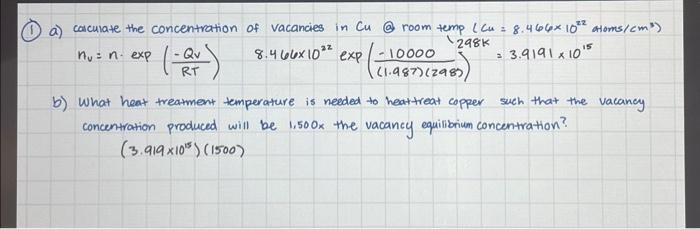 ① a) calculate the concentration of vacancies in Cu @ room temp (Cu = 8.466×10²² atoms/cm³)
298K
nᵥ = n · exp (-Qv / RT) 8.466×10²² exp (-10000 / (1.987)(298)) = 3.9191 × 10¹⁵
b) What heat treatment temperature is needed to heat treat copper such that the vacancy
concentration produced will be 1,500x the vacancy equilibrium concentration?
(3.919×10¹⁵)(1500)